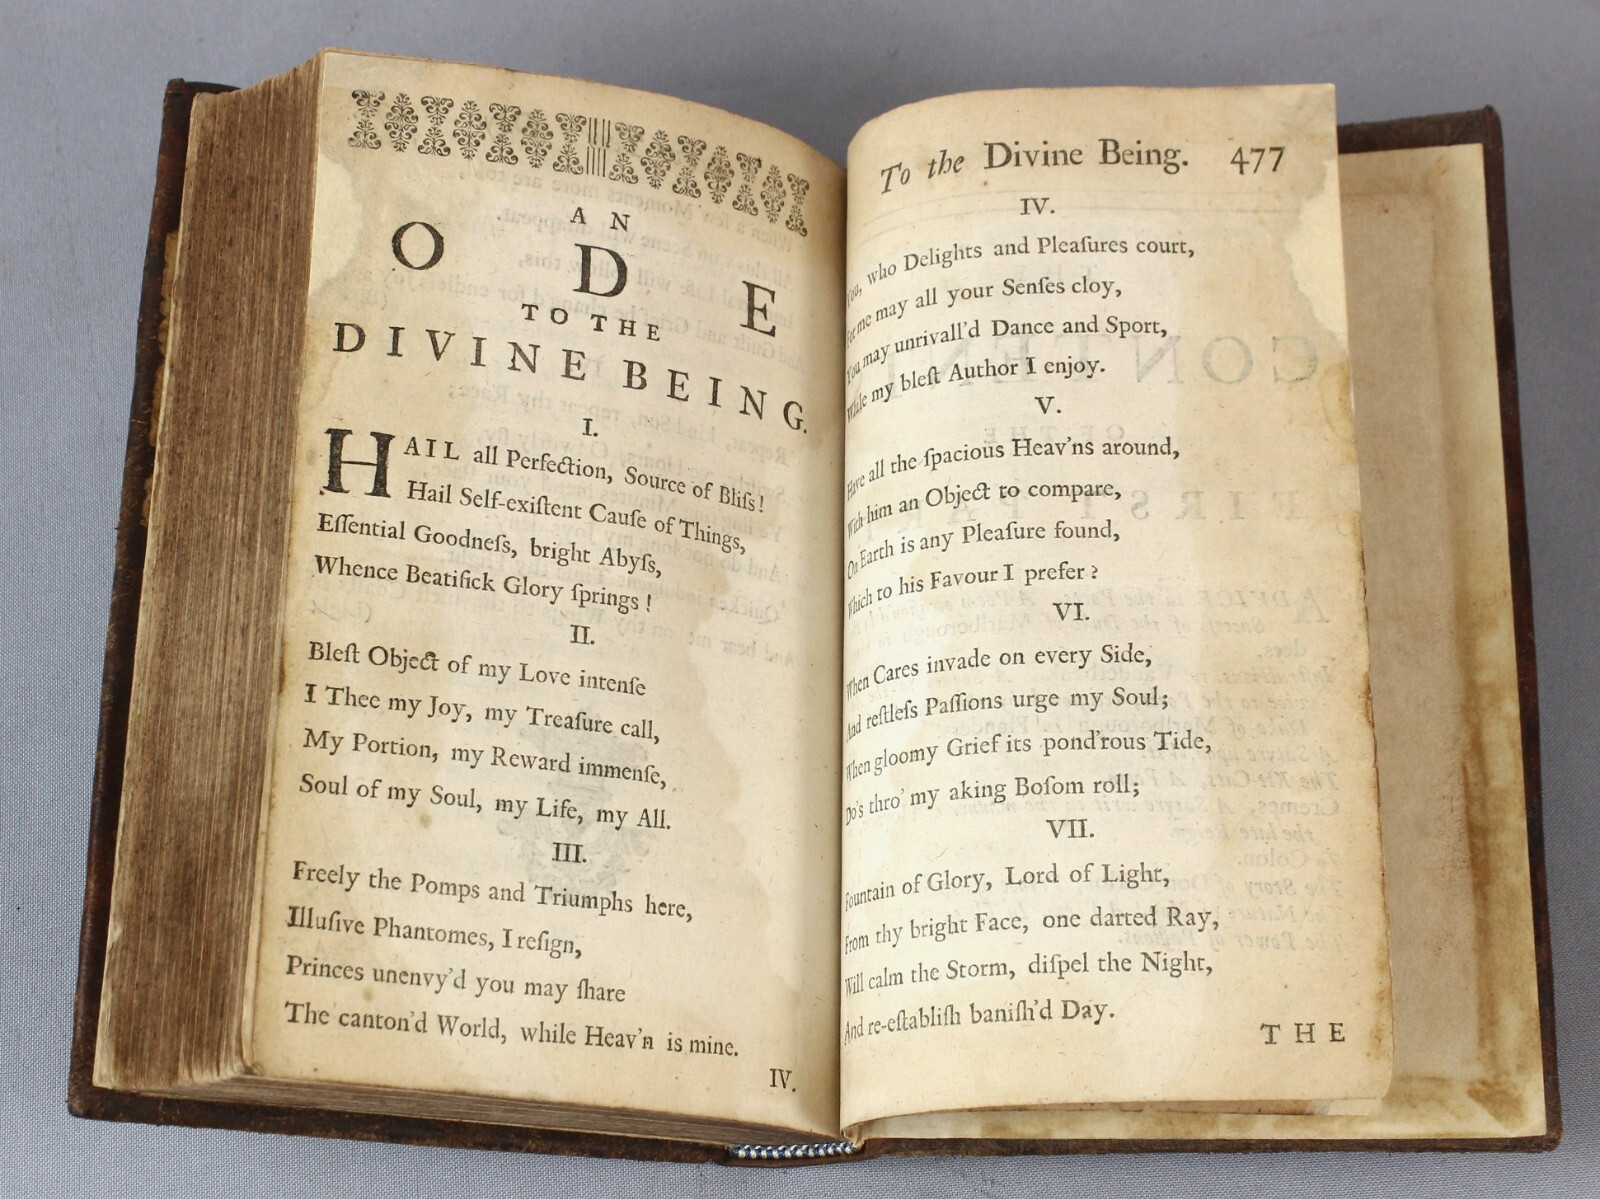 AN
ODE
TO THE
DIVINE BEING.
I.
HAIL all Perfection, Source of Bliſs!
Hail Self-exiſtent Cauſe of Things,
Eſſential Goodneſs, bright Abyſs,
Whence Beatifick Glory ſprings!
II.
Bleſt Object of my Love intenſe
I Thee my Joy, my Treaſure call,
My Portion, my Reward immenſe,
Soul of my Soul, my Life, my All.
III.
Freely the Pomps and Triumphs here,
Illuſive Phantomes, I reſign,
Princes unenvy'd you may ſhare
The canton'd World, while Heav'n is mine.
IV.
To the Divine Being. 477
IV.
You, who Delights and Pleaſures court,
For me may all your Senſes cloy,
You may unrivall'd Dance and Sport,
While my bleſt Author I enjoy.
V.
Have all the ſpacious Heav'ns around,
With him an Object to compare,
On Earth is any Pleaſure found,
Which to his Favour I prefer?
VI.
When Cares invade on every Side,
And reſtleſs Paſſions urge my Soul;
When gloomy Grief its pond'rous Tide,
Do's thro' my aking Boſom roll;
VII.
Fountain of Glory, Lord of Light,
From thy bright Face, one darted Ray,
Will calm the Storm, diſpel the Night,
And re-eſtabliſh baniſh'd Day.
THE